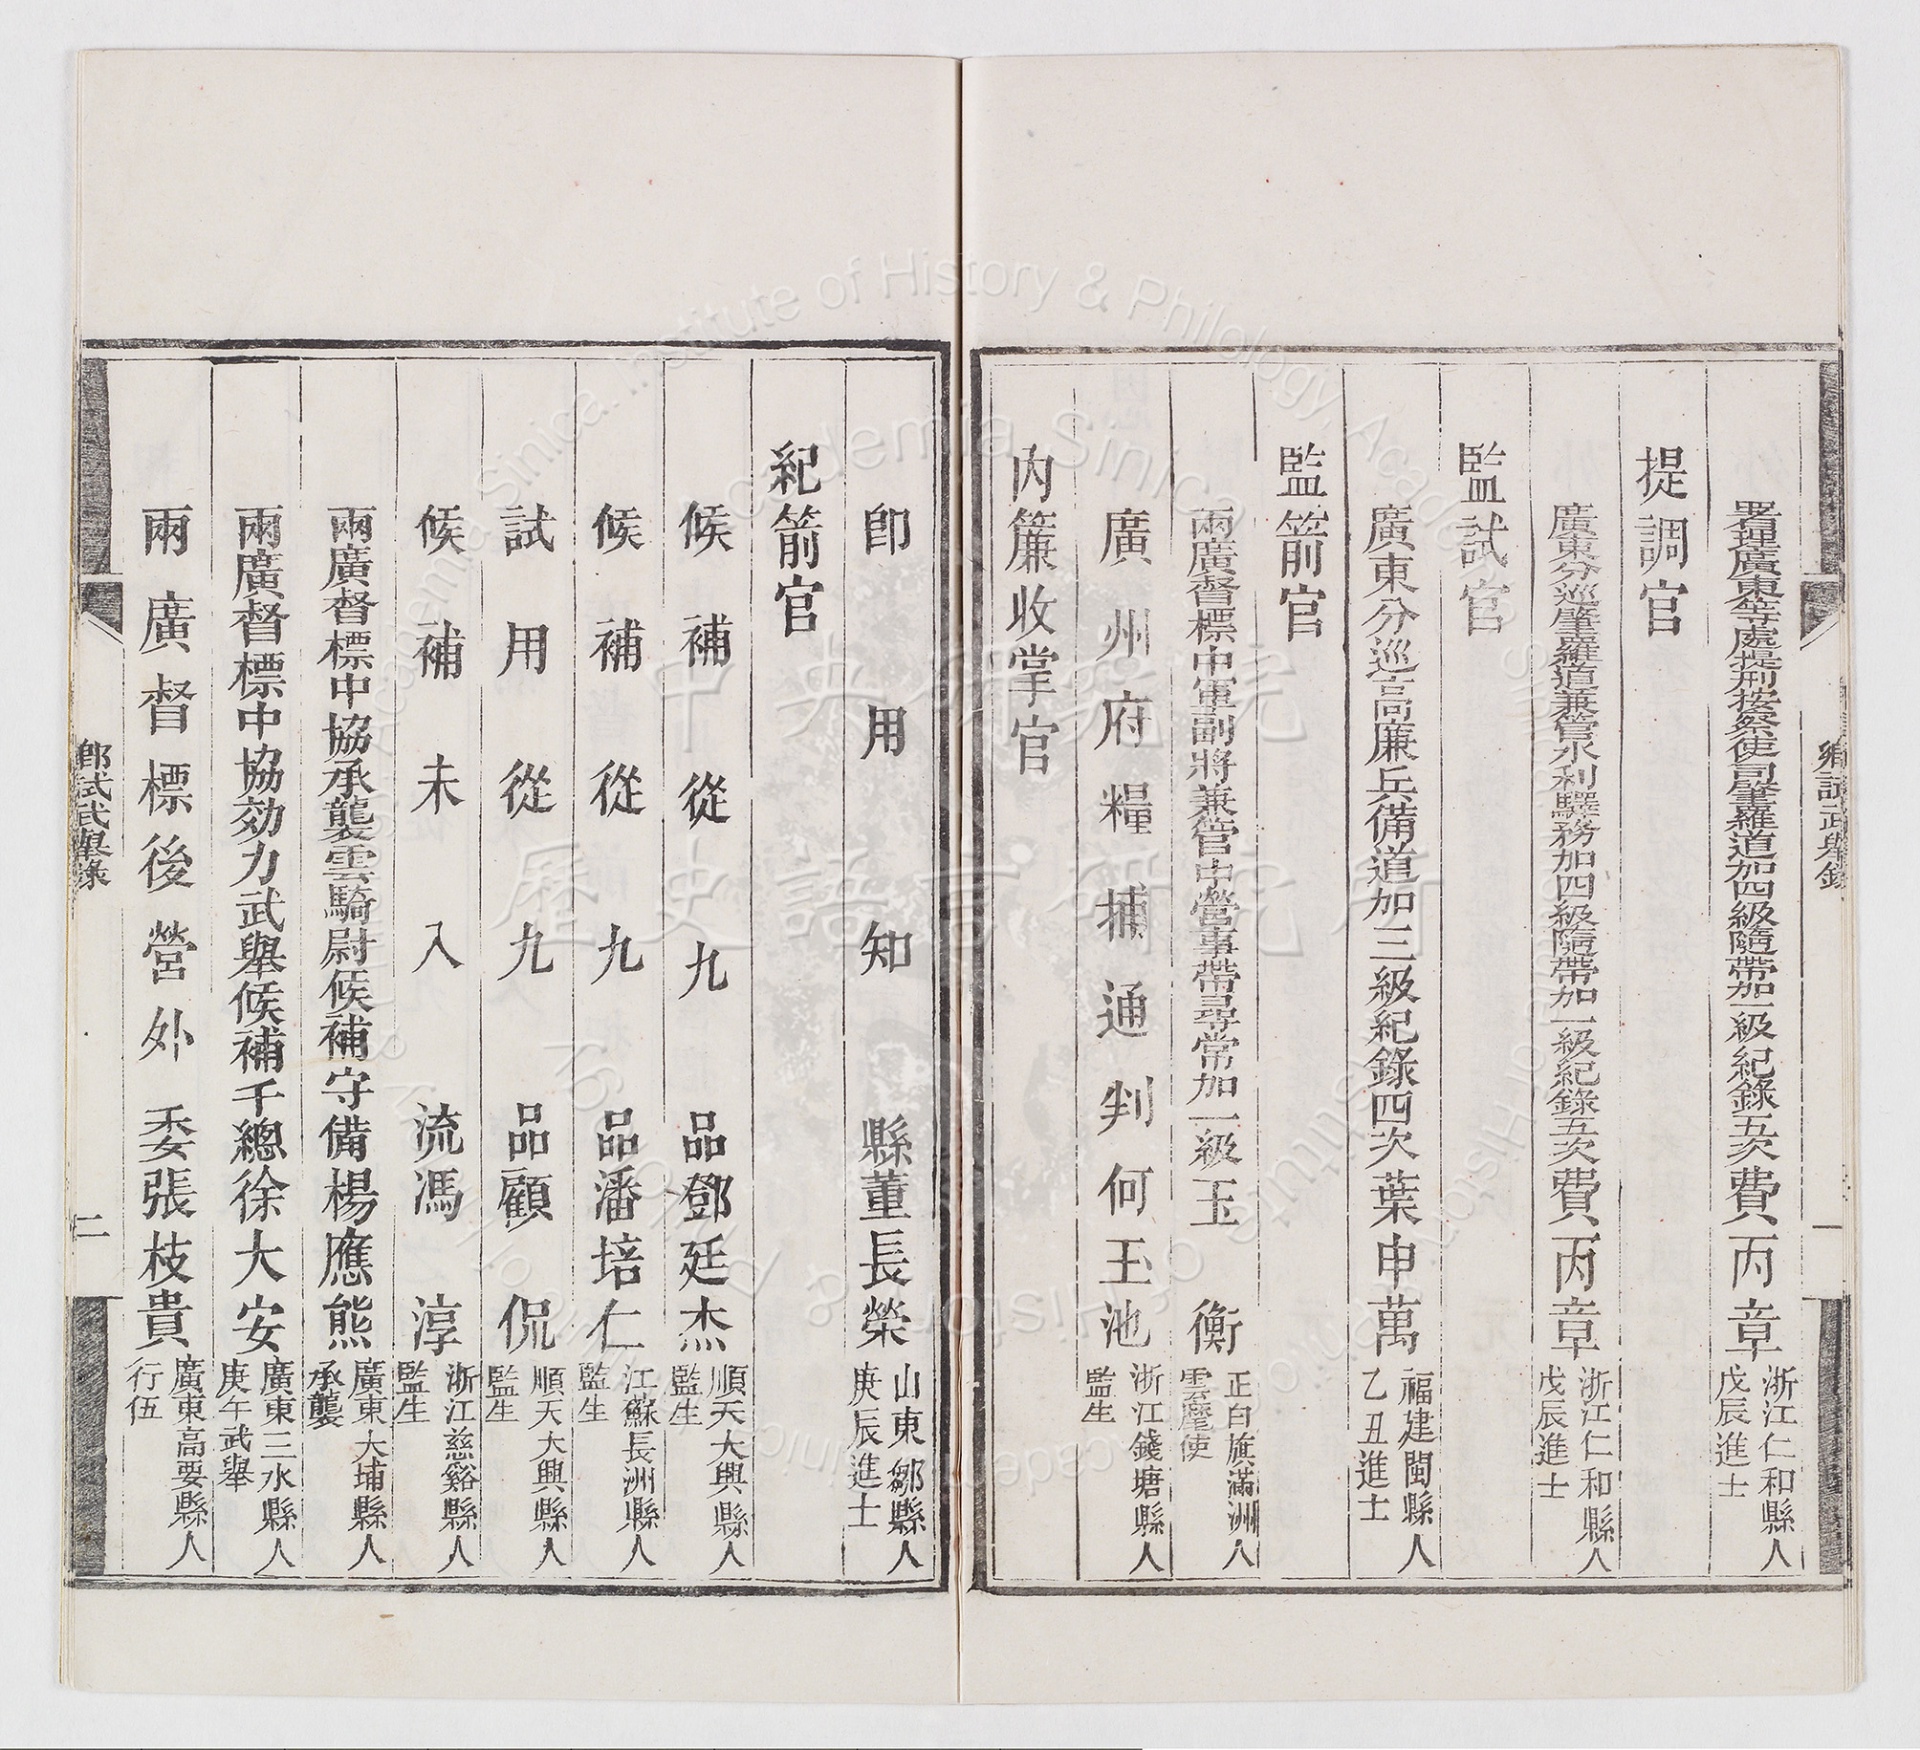 署理廣東等處提刑按察使司肇羅道加四級隨帶加一級紀錄五次費丙章 浙江仁和縣人 戊辰進士
提調官
廣東分巡肇羅道兼管水利驛務加四級隨帶加一級紀錄五次費丙章 浙江仁和縣人 戊辰進士
監試官
廣東分巡高廉兵備道加三級紀錄四次葉申萬 福建閩縣人 乙丑進士
監箭官
兩廣督標中軍副將兼管中營事帶尋常加一級玉衡 正白旗滿洲人 雲麾使
廣州府糧捕通判何玉池 浙江錢塘縣人 監生
內簾收掌官
鄉試武舉錄 一
即用知縣董長榮 山東鄒縣人 庚辰進士
紀箭官
候補從九品鄧廷杰 順天大興縣人 監生
候補從九品潘培仁 江蘇長洲縣人 監生
試用從九品顧侃 順天大興縣人 監生
候補未入流馮淳 浙江慈谿縣人 監生
兩廣督標中協承襲雲騎尉候補守備楊應熊 廣東大埔縣人 承襲
兩廣督標中協効力武舉候補千總徐大安 廣東三水縣人 庚午武舉
兩廣督標後營外委張枝貴 廣東高要縣人 行伍
鄉試武舉錄 二
中央研究院
歷史語言研究所
Institute of History & Philology, Academia Sinica